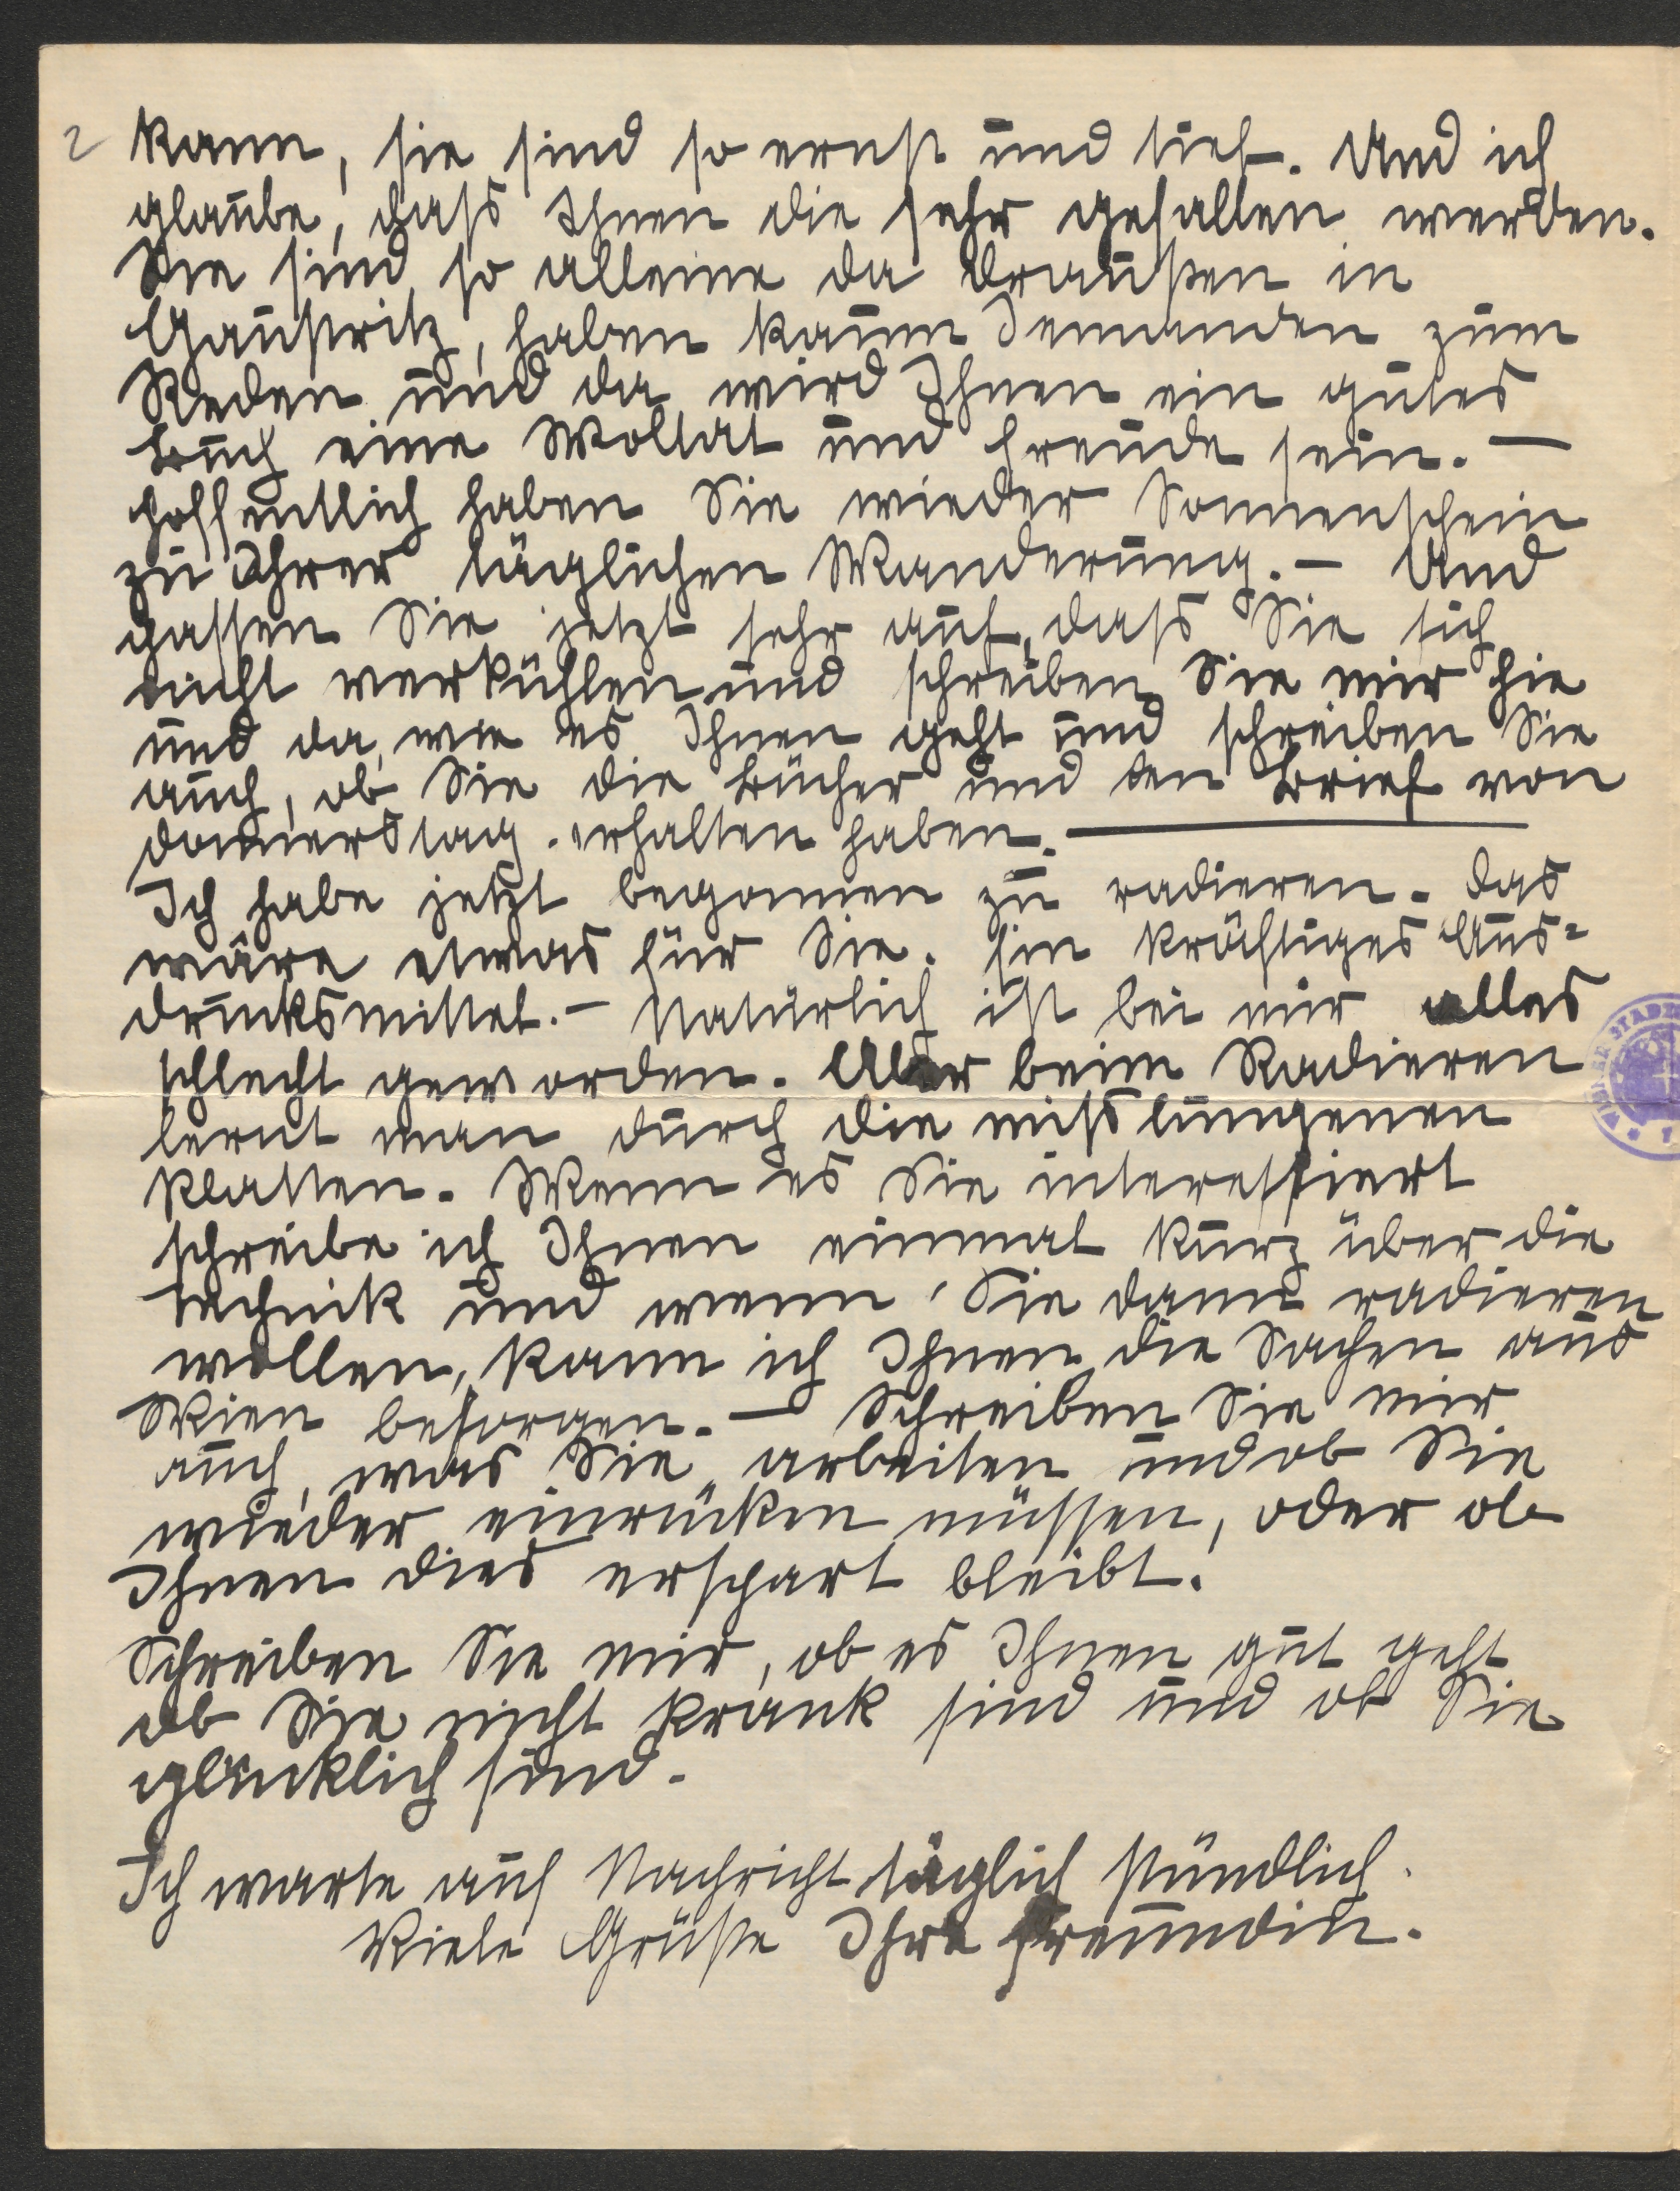 2 kann, sie sind so ernst und tief. Und ich
glaube, dass Ihnen die sehr gefallen werden.
Sie sind so alleine da draußen in
Gaustritz, haben kaum Jemanden zum
Reden und da wird Ihnen ein gutes
Buch eine Woltat und Freude sein. —
Hoffentlich haben Sie wieder Sonnenschein
zu Ihrer täglichen Wanderung. — Und
passen Sie jetzt sehr auf, dass Sie sich
nicht verkühlen und schreiben Sie mir hie
und da, wie es Ihnen geht und schreiben Sie
auch, ob Sie die Bücher und den Brief von
Donnerstag erhalten haben. —
Ich habe jetzt begonnen zu radieren. Das
wäre etwas für Sie. Ein kräftiges Aus=
drucksmittel. — Natürlich ist bei mir alles
schlecht geworden. Aber beim Radieren
lernt man durch die misslungenen
Platten. Wenn es Sie interessiert
schreibe ich Ihnen einmal kurz über die
Technik und wenn Sie dann radieren
wollen, kann ich Ihnen die Sachen aus
Wien besorgen. — Schreiben Sie mir
auch, was Sie arbeiten und ob Sie
wieder einrücken müssen, oder ob
Ihnen dies erspart bleibt.
Schreiben Sie mir, ob es Ihnen gut geht
ob Sie nicht krank sind und ob Sie
glücklich sind.
Ich warte auf Nachricht täglich stündlich.
Viele Grüße Ihre Freundin.